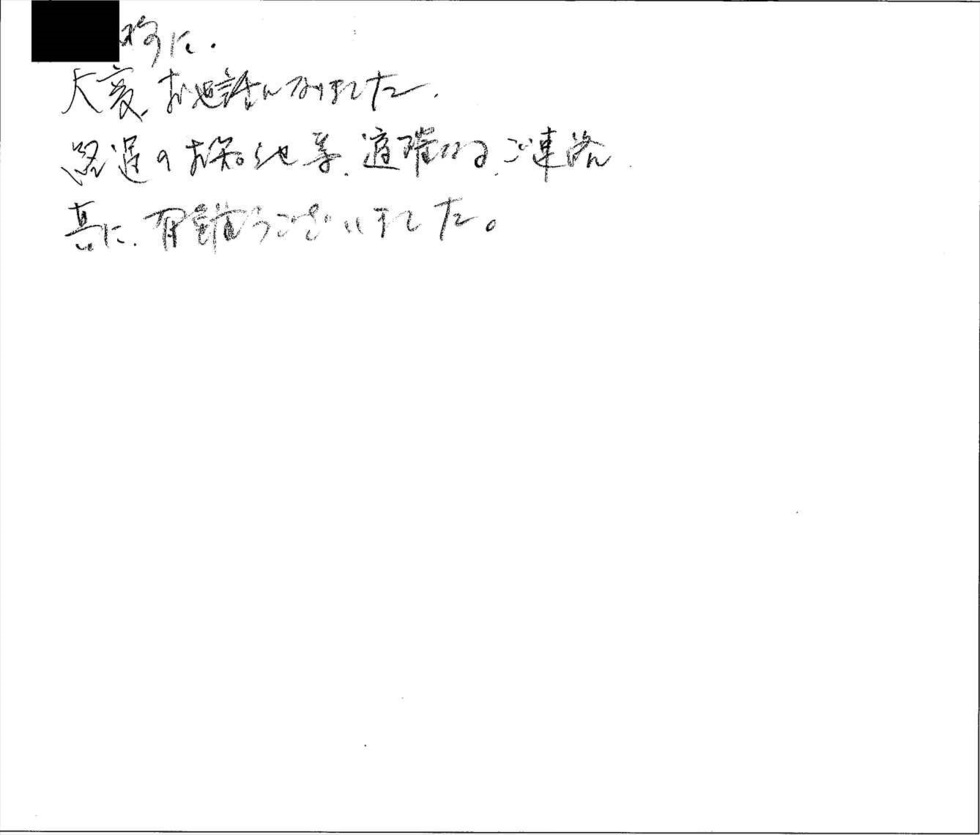 様に.
大変、お世話になりました.
経過のお知らせ等、適確なる、ご連絡
真に、有難うございました。